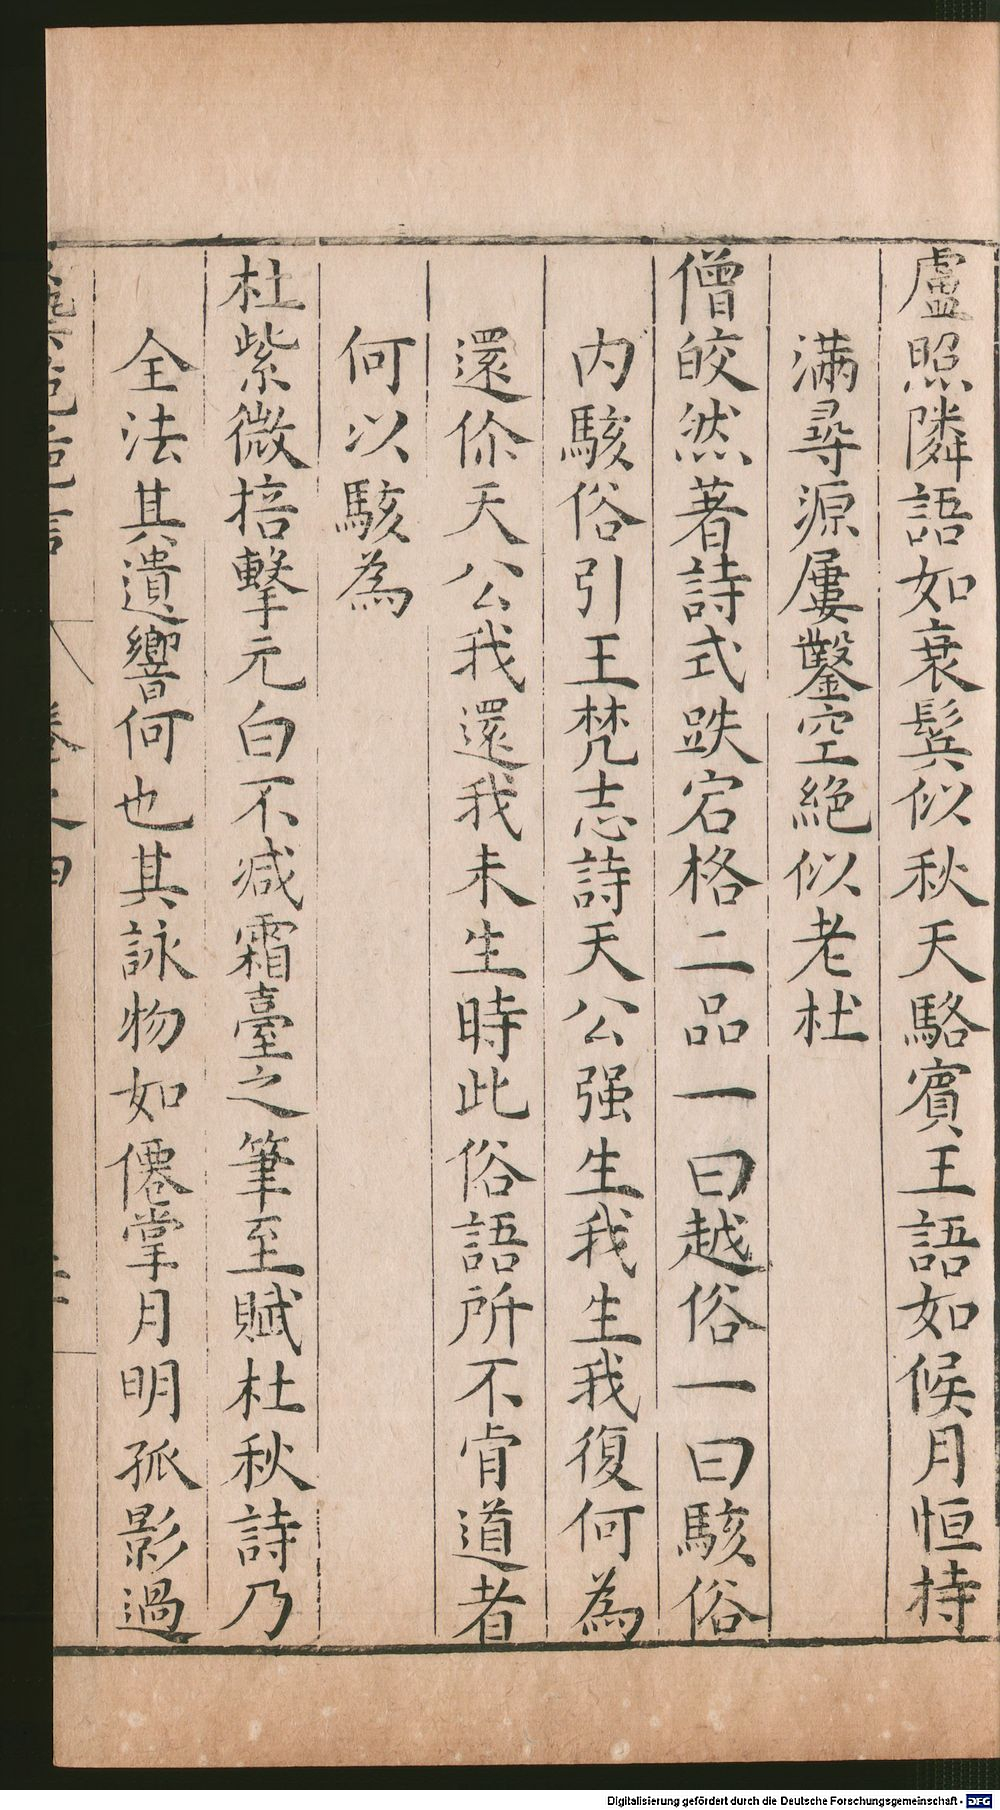 盧照隣語如衰鬂似秋天駱賓王語如候月恒持
滿尋源屢鑿空絕似老杜
僧皎然著詩式跌宕格二品一曰越俗一曰駭俗
内駭俗引王梵志詩天公强生我生我復何為
還伱天公我還我未生時此俗語所不肯道者
何以駭為
杜紫微掊擊元白不减霜臺之筆至賦杜秋詩乃
全法其遺響何也其詠物如僊掌月明孤影過
藝苑巵言 卷之四
Digitalisierung gefördert durch die Deutsche Forschungsgemeinschaft - DFG